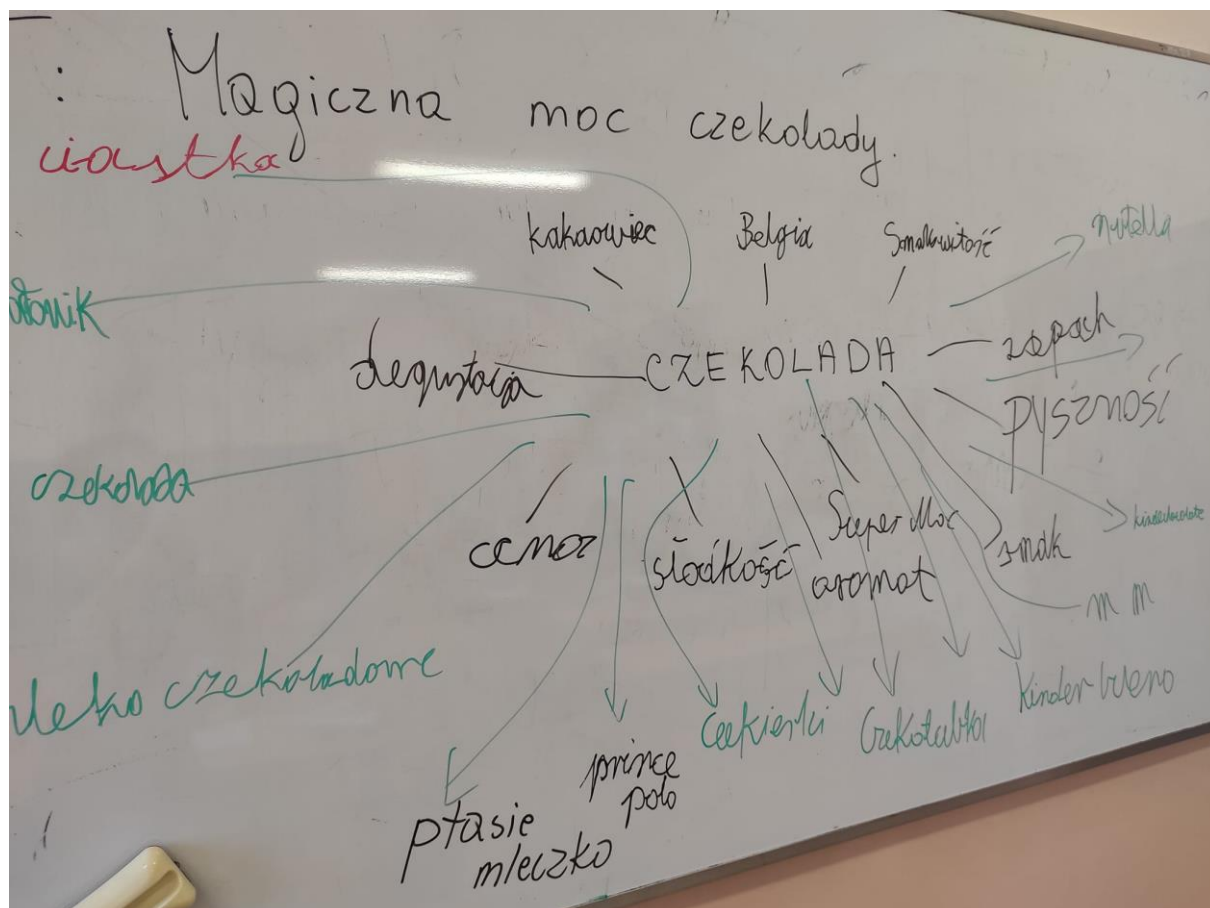 : Magiczna moc czekolady.
ciastka
kakaowiec Belgia Smakowitość nutella
degustacja CZEKOLADA zapach
pyszność
czekolada
słodkość Super Moc smak
aromat
m m
mleko czekoladowe
cukierki kinder bueno
prince
polo
ptasie
mleczko